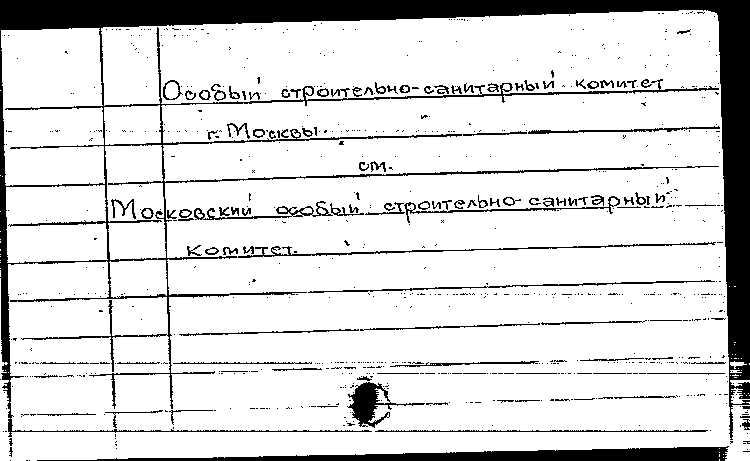 Особый строительно-санитарный комитет
г. Москвы.
см.
Московский особый строительно-санитарный
комитет.